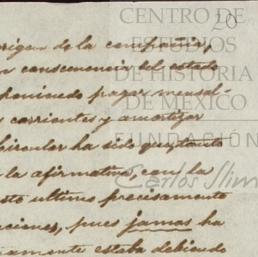 CENTRO DE
ESTUDIOS
DE HISTORIA
DE MÉXICO
FUNDACIÓN
Carlos Slim
20
origen de la compañía,
consecuencia del estado
pagar mensual-
corrientes y amortizar
circular ha sido
la afirmativa, con la
esto ultimo precisamente
ciones, pues jamas ha
amente estaba debiendo